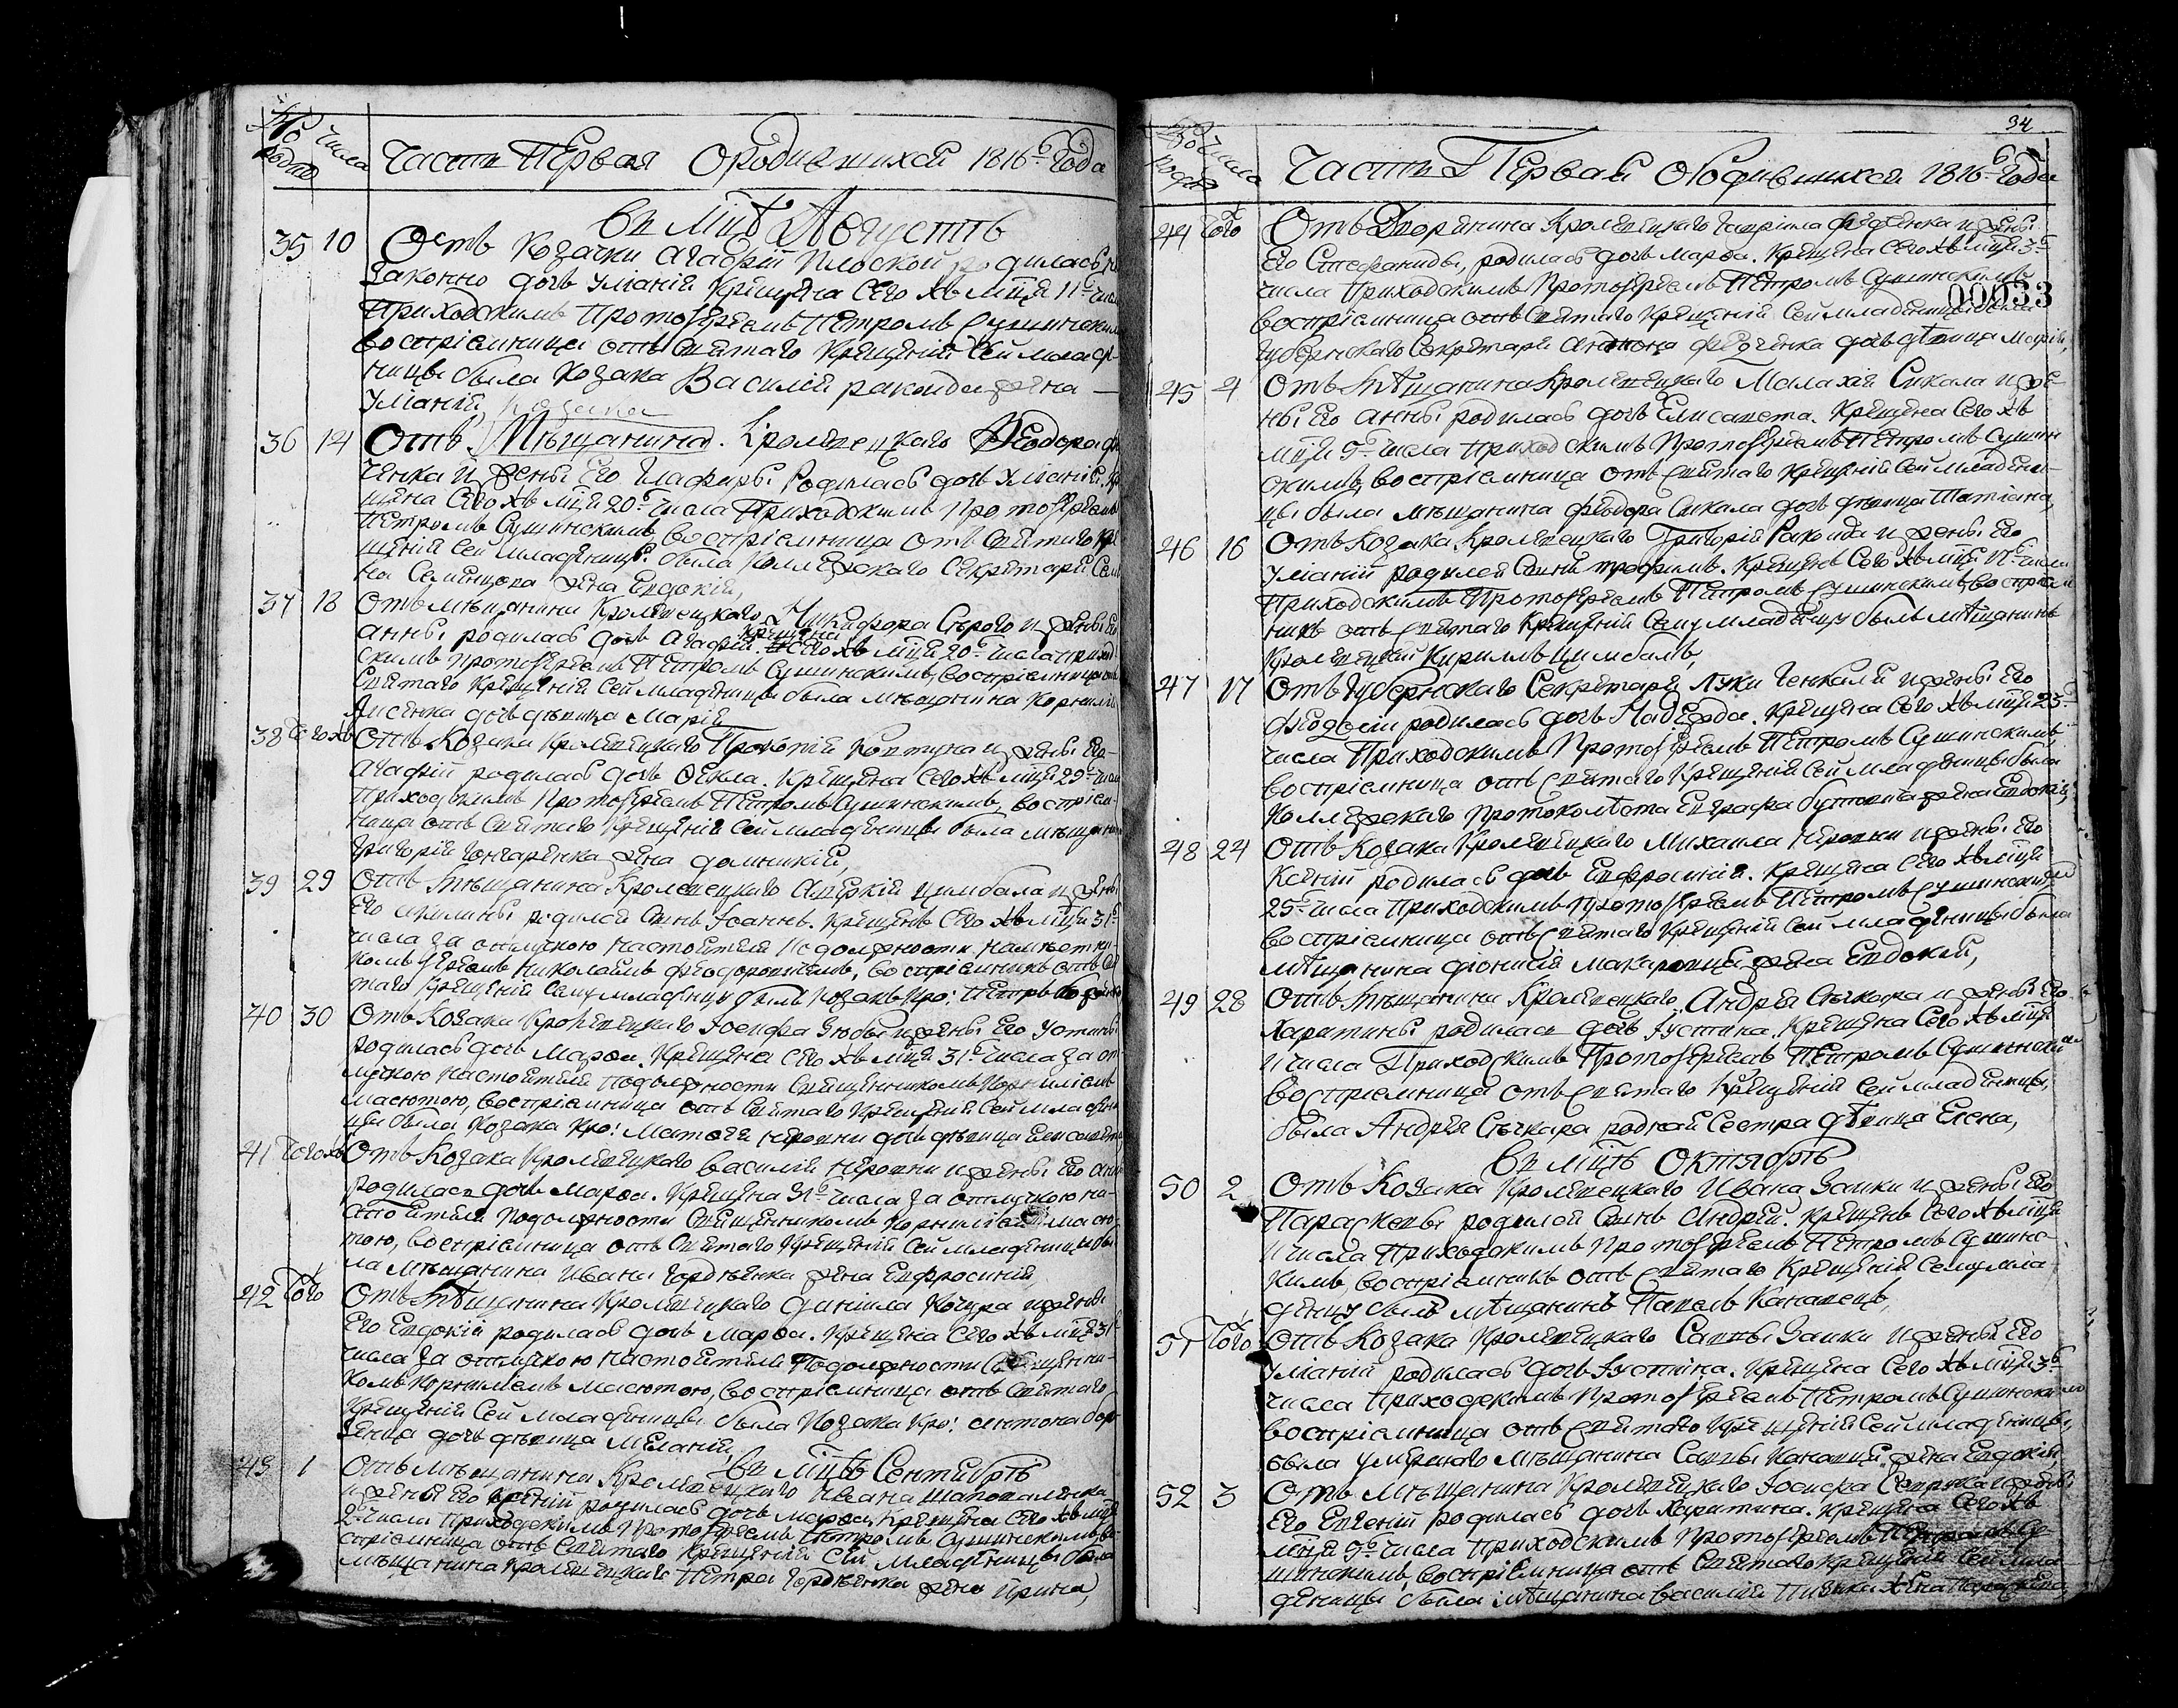 Число родив
числа
Часть Первая о родившихся 1816го Года
въ мцѣ Августѣ
35 10 Отъ Козачки Агафіи Плоской родилась не
законно дочь Уліанія Крещена Сего хъ мца 11го числа
Приходскимъ Протоіереемъ Петромъ Сушинскимъ
воспріемница отъ Святаго Крещенія Сей младе-
ницы была козака Василія ракоида жена
Уліанія
36 14 Отъ Мѣщанина Кролевецкаго Ѳеодора
ченка и жены Его Глафиры Родилась дочь Уліанія, Кре
щена Сего хъ мца 20го числа Приходскимъ Протоіереемъ
Петромъ Сушинскимъ, воспріемница отъ Святаго Кре
щенія Сей младеницы была Коллежскаго Секретаря
Семенцова жена Евдокія,
37 18 Отъ мѣщанина Кролевецкаго Никифора Сѣрого и жены Его
Анны родилась дочь Агафія. Крещена Сего хъ мца 20го числа приход
скимъ протоіереемъ Петромъ Сушинскимъ, воспріемница отъ
Святаго Крещенія Сей младеницы была мѣщанина Корнилія
Лисенка дочь дѣвица Марія
38 Того хъ Отъ Козака Кролевецкаго Прокопія Ковтуна и жены Его
Агафіи родилась дочь Ѳекла. Крещена Сего хъ мца 29го числа
Приходскимъ Протоіереемъ Петромъ Сушинскимъ, воспріем-
ница отъ Святаго Крещенія Сей младеницы была мѣщанина
Григорія Гончаренка жена Домникія,
39 29 Отъ Мѣщанина Кролевецкаго Алексія Цимбала и жены
Его Акилины родился Сынъ Іоаннъ. Крещенъ Сего хъ мца 31го
числа за отлучкою Настоятеля по должности намѣстни-
комъ Іереемъ Николаемъ Ѳеодоровичемъ, воспріемникъ отъ Свя
таго Крещенія Сему младенцу былъ козакъ Кро: Петръ
40 30 Отъ Козака Кролевецкаго Іосифа Зюбы и жены Его Устины
родилась дочь Марѳа. Крещена Сего хъ мца 31го числа за от-
лучкою Настоятеля по должности Священникомъ Корниліемъ
Масютою, воспріемница отъ Святаго Крещенія Сей младени
цы была козака Кро: Матвея Нѣровни дочь дѣвица Елисавета
41 Того хъ Отъ Козака Кролевецкаго Василія Нѣровни и жены Его
родилась дочь Марѳа. Крещена 31го числа за отлучкою На-
стоятеля по должности Священникомъ Корниліемъ Масю-
тою, воспріемница отъ Святаго Крещенія Сей младеницы бы
ла мѣщанина Ивана Гордѣенка жена Евфросинія
42 Того Отъ Мѣщанина Кролевецкаго Даніила Кочура и жены
Его Евдокіи родилась дочь Марѳа. Крещена Сего хъ мца 31го
числа за отлучкою Настоятеля По должности Священни-
комъ Корниліемъ Масютою, воспріемница отъ Святаго
Крещенія Сей младеницы была Козака Кро: Антона
дочь дѣвица Меланія
въ мцѣ Сентябрѣ
43 1 Отъ мѣщанина Кролевецкаго Ивана Шаповаленка
и жены Его Ксеніи родилась дочь Марѳа, Крещена Сего хъ мца
2го числа приходскимъ Протоіереемъ Петромъ Сушинскимъ, во-
спріемница отъ Святаго Крещенія Сей младеницы была
мѣщанина Кролевецкаго Петра Гордѣенка жена Ирина,
34
числа
Часть Первая о Родившихся 1816го Года
44 Того Отъ Дворянина Кролевецкаго Гавріила Ѳедченка и жены
Его Стефаниды, родилась дочь Марѳа. Крещена Сего хъ мца 3го
числа Приходскимъ Протоіереемъ Петромъ Сушинскимъ
00033
воспріемница отъ Святаго Крещенія Сей младеницы была
Губернскаго Секретаря Антона Ѳедченка дочь дѣвица Марія,
45 4 Отъ Мѣщанина Кролевецкаго Малахія Сикала и же-
ны Его Анны родилась дочь Елисавета. Крещена Сего хъ
мца 5го числа Приходскимъ Протоіереемъ Петромъ Сушин
скимъ, воспріемница отъ Святаго Крещенія Сей младени-
цы была мѣщанина Ѳедора Сикала дочь дѣвица Татіана,
46 16 Отъ Козака Кролевецкаго Григорія Ракоида и жены Его
Уліаніи родился Сынъ Трофимъ. Крещенъ Сего хъ мца 17го числа
Приходскимъ Протоіереемъ Петромъ Сушинскимъ, воспріем
никъ отъ Святаго Крещенія Сему младенцу былъ мѣщанинъ
Кролевецкій Кириллъ Цимбалъ,
47 17 Отъ Губернскаго Секретаря Луки Генкаля и жены Его
Ѳедосіи родилась дочь Надежда. Крещена Сего хъ мца 23го
числа Приходскимъ Протоіереемъ Петромъ Сушинскимъ,
воспріемница отъ Святаго Крещенія Сей младеницы была
Коллежскаго Протоколиста Евграфа Бутовича жена Евдокія,
48 24 Отъ Козака Кролевецкаго Михаила Нѣровни и жены Его
Ксеніи родилась дочь Евфросинія. Крещена Сего хъ мца
25го числа приходскимъ протоіереемъ Петромъ Сушинскимъ
воспріемница отъ Святаго Крещенія Сей младеницы была
мѣщанина Діонисія Макаровца жена Евдокія,
49 28 Отъ Мѣщанина Кролевецкаго Андрея Сѣчкара и жены Его
Харитины родилась дочь Іустина. Крещена Сего хъ мца
числа Приходскимъ Протоіереемъ Петромъ Сушинскимъ
воспріемница отъ Святаго Крещенія Сей младеницы,
была Андрея Сѣчкара родная Сестра дѣвица Елена,
въ мцѣ Октябрѣ
50 2 Отъ Козака Кролевецкаго Ивана Заики и жены Его
Параскевы родился Сынъ Андрей. Крещенъ Сего хъ мца
числа Приходскимъ Протоіереемъ Петромъ Сушинс-
кимъ, воспріемникъ отъ Святаго Крещенія Сему мла
денцу былъ мѣщанинъ Павелъ Канавецъ,
51 Того Отъ Козака Кролевецкаго Саввы Заики и жены Его
Уліаніи родилась дочь Іустина. Крещена Сего хъ мца 3го
числа приходскимъ Протоіереемъ Петромъ Сушинскимъ
воспріемница отъ Святаго Крещенія Сей младеницы,
была умершаго мѣщанина Саввы Канавца жена Евдокія,
52 3 Отъ Мѣщанина Кролевецкаго Іосифа и жены
Его Евгеніи родилась дочь Харитина. Крещена Сего хъ
мца 5го числа Приходскимъ Протоіереемъ Петромъ Су-
шинскимъ, воспріемница отъ Святаго Крещенія Сей мла-
деницы была мѣщанина Василія жена Параскева,